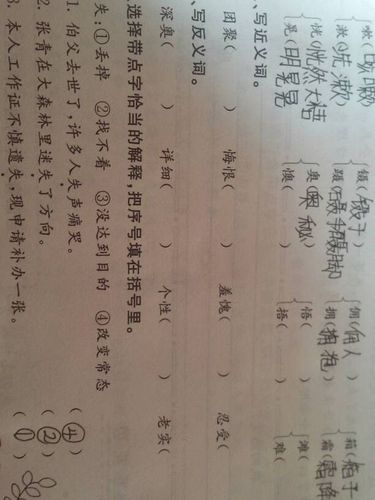 嗽(咳嗽) 镊(镊子 佣(佣人 箱(箱子
漱(洗漱) 蹑(蹑手蹑脚 拥(拥抱 霜(霜降
恍(恍然大 奥(奥秘) 悟( ) 滩(
晃(明晃晃 懊( ) 梧( ) 难(
、写近义词。
团聚( ) 悔恨( ) 羞愧( ) 忍受(
、写反义词。
深奥( ) 详细( ) 个性( ) 老实(
选择带点字恰当的解释,把序号填在括号里。
失:①丢掉 ②找不着 ③没达到目的 ④改变常态
1. 伯父去世了,许多人失声痛哭。 (④)
2. 张青在大森林里迷失了方向。 (②)
3. 本人工作证不慎遗失,现申请补办一张。 (①)